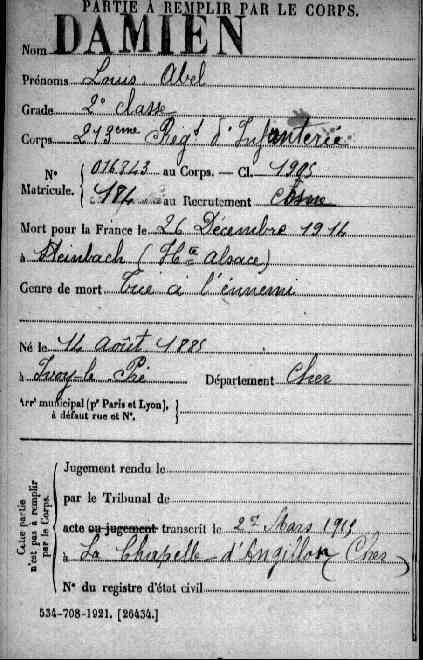 PARTIE À REMPLIR PAR LE CORPS.
Nom DAMIEN
Prénoms Louis Abel
Grade 2e classe
Corps 213ème Régt d'Infanterie
N° Matricule. { 016843 au Corps. — Cl. 1905
184 au Recrutement
Mort pour la France le 26 Décembre 1914
à Steinbach (Hte Alsace)
Genre de mort Tué à l'ennemi
Né le 14 août 1885
à Ivoy-le Pré Département Cher
Arrt municipal (pr Paris et Lyon), à défaut rue et N°. }
Cette partie n'est pas à remplir par le Corps.
Jugement rendu le
par le Tribunal de
acte ou jugement transcrit le Mars 1915
à La Chapelle-d'Angillon (Cher)
N° du registre d'état civil
534-708-1921. [26434.]